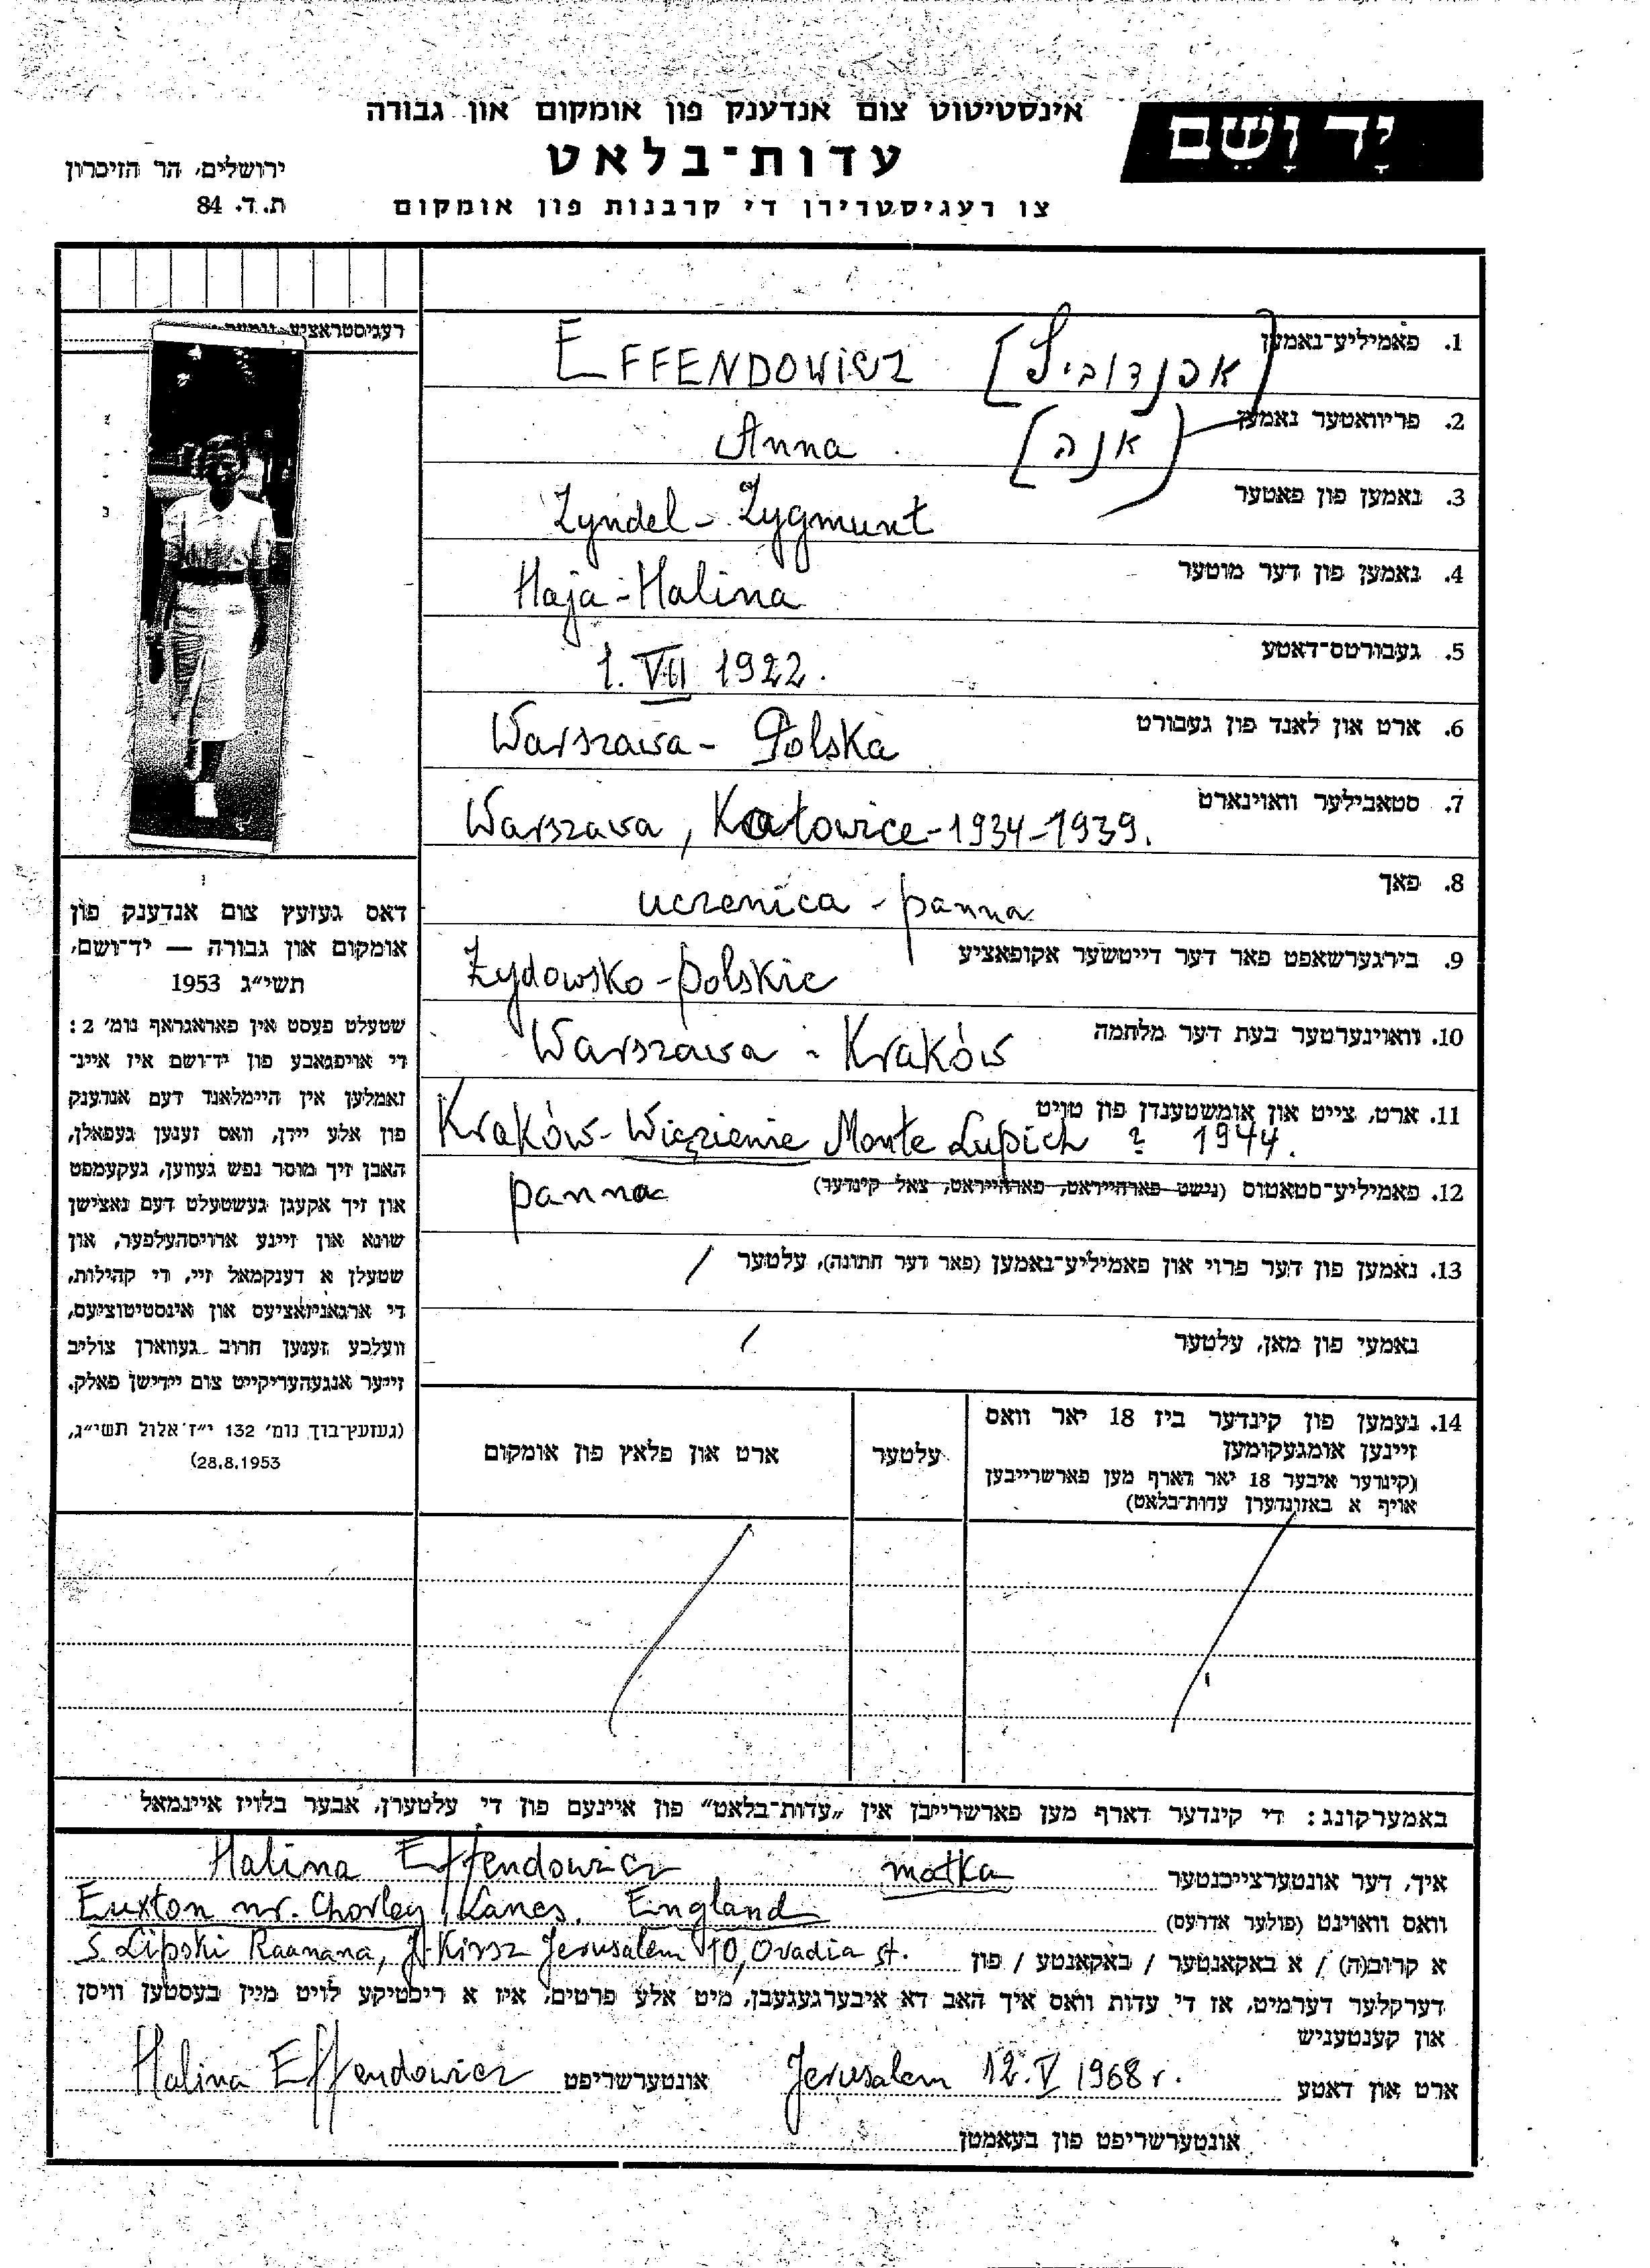 יָד וָשֵׁם
אינסטיטוט צום אנדענק פון אומקום און גבורה
עדות־בלאט
צו רעגיסטרירן די קרבנות פון אומקום
ירושלים, הר הזיכרון
ת. ד. 84
רעגיסטראציע־נומער
1. פאמיליע־נאמען
EFFENDOWICZ [אפנדוביץ]
2. פריוואטער נאמען
Anna [אנה]
3. נאמען פון פאטער
Zyndel - Zygmunt
4. נאמען פון דער מוטער
Haja - Halina
5. געבורטס־דאטע
1. VII 1922.
6. ארט און לאנד פון געבורט
Warszawa - Polska
7. סטאבילער וואוינארט
Warszawa, Katowice - 1934 - 1939.
8. פאך
uczenica - panna
9. בירגערשאפט פאר דער דייטשער אקופאציע
Żydowsko - polskie
10. וואוינערטער בעת דער מלחמה
Warszawa - Kraków
11. ארט, צייט און אומשטענדן פון טויט
Kraków - Więzienie Monte Lupich ? 1944.
12. פאמיליע־סטאטוס (נישט פארהייראט, פארהייראט, צאל קינדער)
panna
13. נאמען פון דער פרוי און פאמיליע־נאמען (פאר דער חתונה), עלטער /
נאמעי פון מאן, עלטער /
14. נעמען פון קינדער ביז 18 יאר וואס
זיינען אומגעקומען
(קינדער איבער 18 יאר דארף מען פארשרייבן
אויף א באזונדערן עדות־בלאט)
עלטער
ארט און פלאץ פון אומקום
דאס געזעץ צום אנדענק פון
אומקום און גבורה — יד־ושם,
תשי״ג 1953
שטעלט פעסט אין פאראגראף נומ׳ 2 :
די אויפגאבע פון יד־ושם איז איינ־
זאמלען אין היימלאנד דעם אנדענק
פון אלע יידן, וואס זענען געפאלן,
האבן זיך מוסר נפש געווען, געקעמפט
און זיך אקעגן געשטעלט דעם נאצישן
שונא און זיינע ארויסהעלפער, און
שטעלן א דענקמאל זיי, די קהילות,
די ארגאניזאציעס און אינסטיטוציעס,
וועלכע זענען חרוב געווארן צוליב
זייער אנגעהעריקייט צום יידישן פאלק.
(געזעץ־בוך נומ׳ 132 י״ז אלול תשי״ג,
28.8.1953)
באמערקונג : די קינדער דארף מען פארשרייבן אין „עדות־בלאט” פון איינעם פון די עלטערן, אבער בלויז איינמאל
איך, דער אונטערצייכנטער Halina Effendowicz matka
וואס וואוינט (פולער אדרעס) Euxton nr. Chorley, Lancs. England
א קרוב(ה) / א באקאנטער / באקאנטע / פון S. Lipski Raanana, J. Kirsz Jerusalem 10, Ovadia st.
דערקלער דערמיט, אז די עדות וואס איך האב דא איבערגעגעבן, מיט אלע פרטים, איז א ריכטיקע לויט מיין בעסטען וויסן
און קענטעניש
ארט און דאטע Jerusalem 12. V 1968 r. אונטערשריפט Halina Effendowicz
אונטערשריפט פון בעאמטן